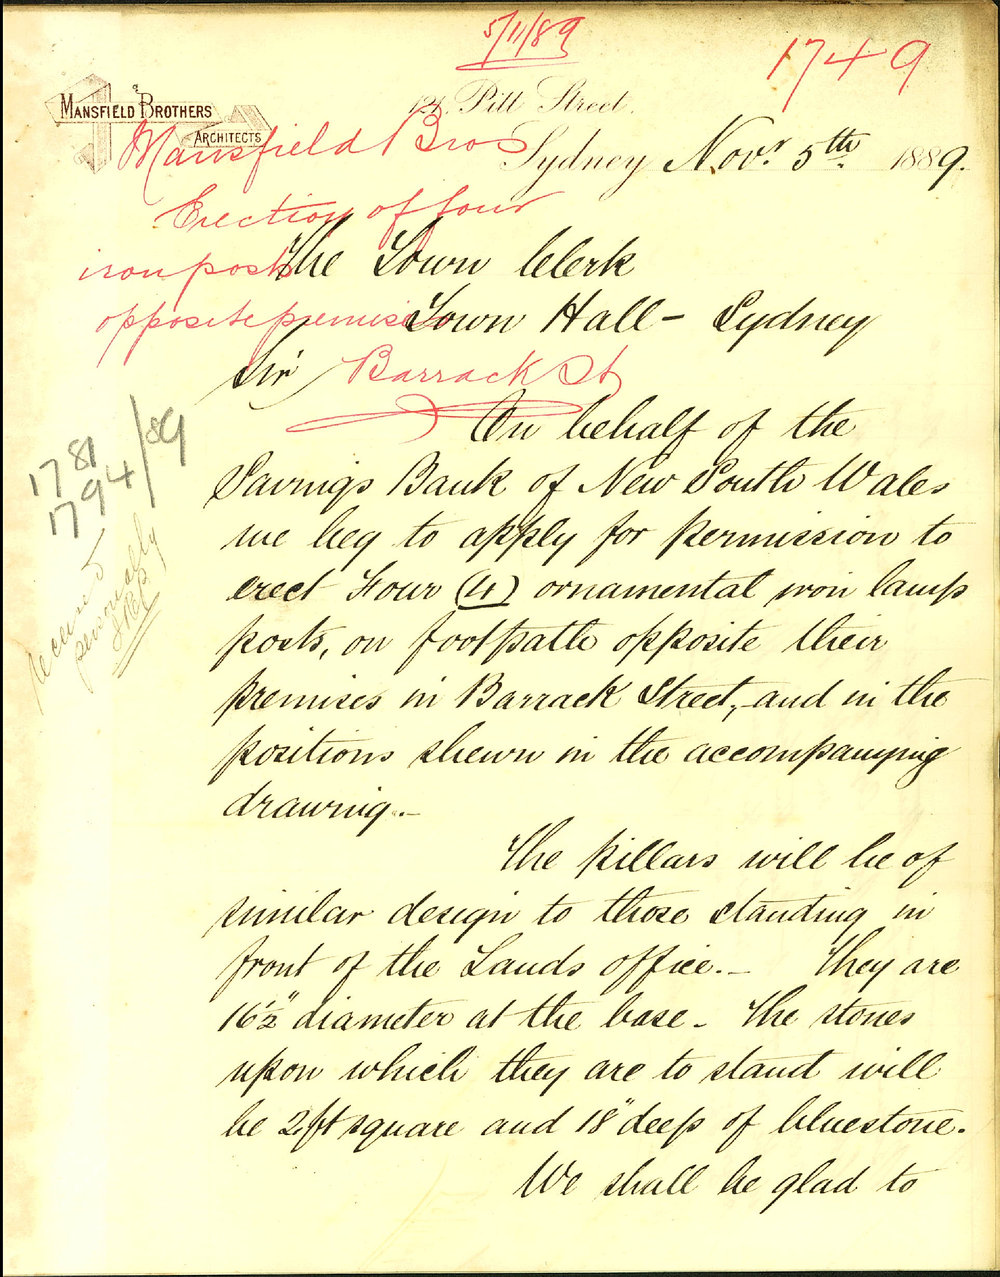 5/11/89
1749
Mansfield Brothers
Architects
121. Pitt Street.
Sydney Novr. 5th 1889.
Mansfield Bros
Erection of four
iron posts
opposite premises
Barrack St
The Town Clerk
Town Hall - Sydney
Sir
On behalf of the
Savings Bank of New South Wales
we beg to apply for permission to
erect Four (4) ornamental iron lamp
posts, on footpath opposite their
premises in Barrack Street, and in the
positions shewn in the accompanying
drawing.-
The pillars will be of
similar design to those standing in
front of the Lands office.- They are
16½" diameter at the base - The stones
upon which they are to stand will
be 2 ft square and 18" deep of bluestone.
We shall be glad to
1781
1794/89
received
personally